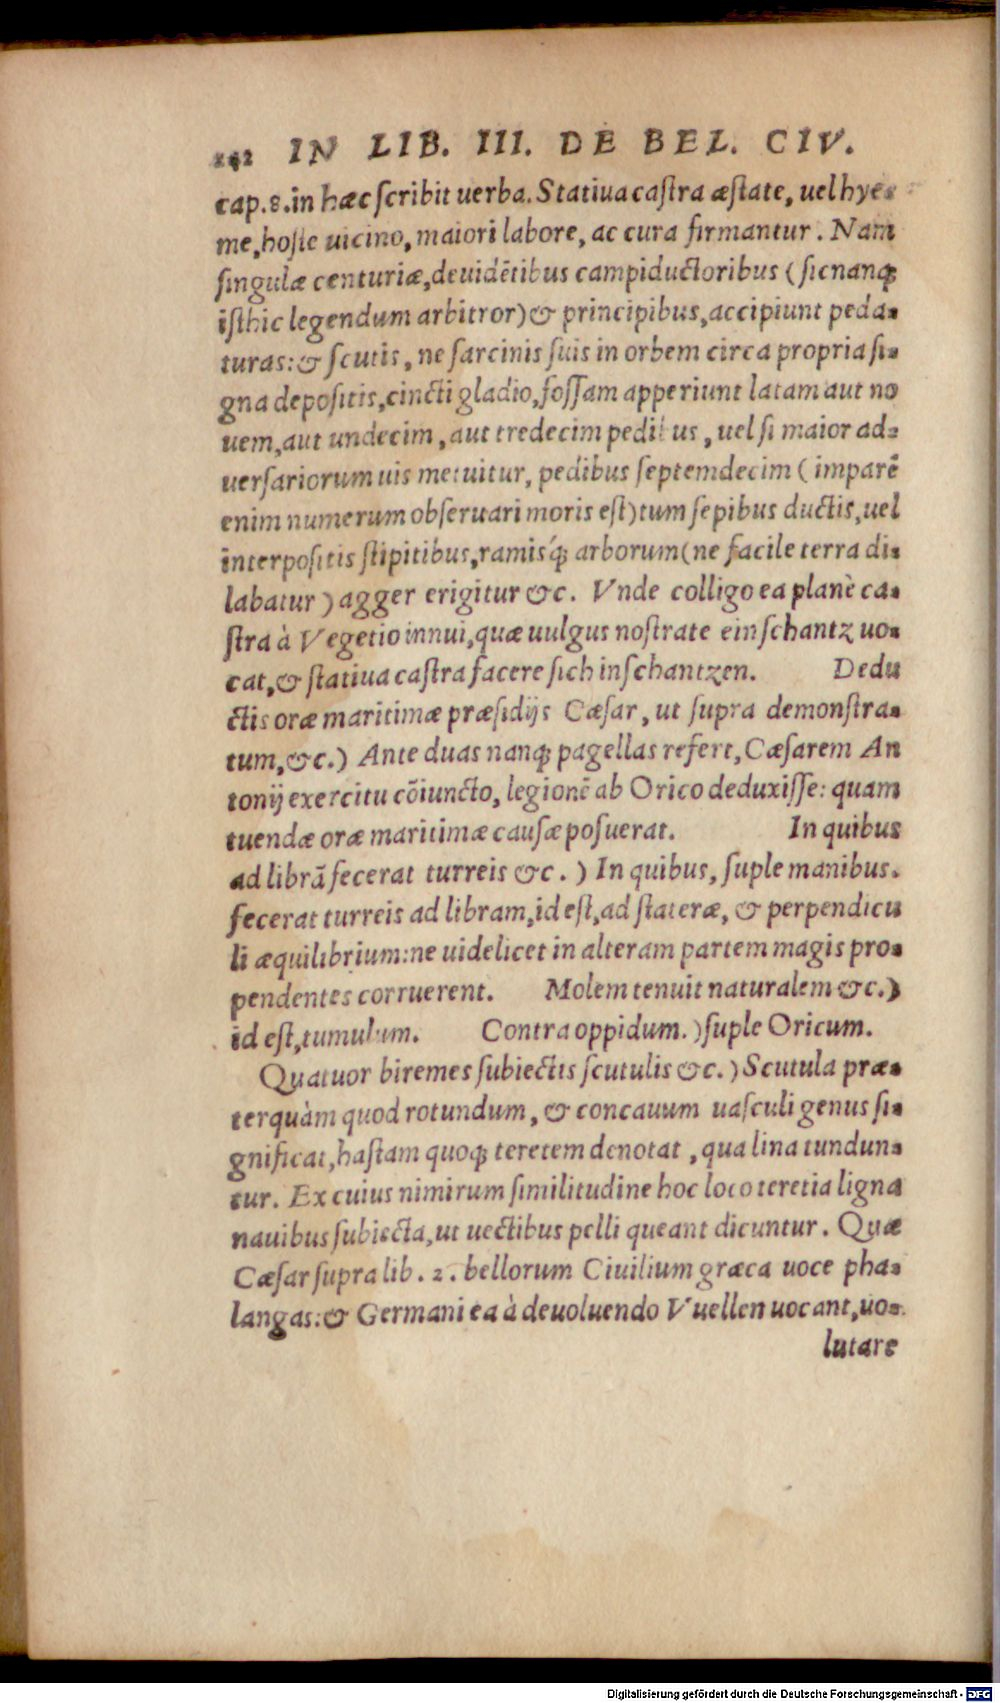 242 IN LIB. III. DE BEL. CIV.
cap.8.in hæc ſcribit uerba. Statiua caſtra æſtate, uel hye⸗
me, hoſte uicino, maiori labore, ac cura firmantur. Nam
ſingulæ centuriæ, deuidẽtibus campiductoribus (ſic nanq́;
iſthic legendum arbitror) & principibus, accipiunt peda⸗
turas: & ſcutis, ne ſarcinis ſuis in orbem circa propria ſi⸗
gna depoſitis, cincti gladio, foſſam apperiunt latam aut no
uem, aut undecim, aut tredecim pedibus, uel ſi maior ad⸗
uerſariorum uis metuitur, pedibus ſeptemdecim (imparẽ
enim numerum obſeruari moris eſt) tum ſepibus ductis, uel
interpoſitis ſtipitibus, ramisq́; arborum (ne facile terra di⸗
labatur) agger erigitur &c. Vnde colligo ea planè ca⸗
ſtra à Vegetio innui, quæ uulgus noſtrate ein ſchantz uo⸗
cat, & ſtatiua caſtra facere ſich inſchantzen. Dedu
ctis oræ maritimæ præſidijs Cæſar, ut ſupra demonſtra⸗
tum, &c.) Ante duas nanq; pagellas refert, Cæſarem An
tonij exercitu cõiuncto, legionẽ ab Orico deduxiſſe: quam
tuendæ oræ maritimæ cauſæ poſuerat. In quibus
ad librã fecerat turreis &c.) In quibus, ſuple manibus.
fecerat turreis ad libram, id eſt, ad ſtateræ, & perpendicu
li æquilibrium: ne uidelicet in alteram partem magis pro⸗
pendentes corruerent. Molem tenuit naturalem &c.)
id eſt, tumulum. Contra oppidum.) ſuple Oricum.
Quatuor biremes ſubiectis ſcutulis &c.) Scutula præ⸗
terquàm quod rotundum, & concauum uaſculi genus ſi⸗
gnificat, haſtam quoq; teretem denotat, qua lina tundun⸗
tur. Ex cuius nimirum ſimilitudine hoc loco teretia ligna
nauibus ſubiecta, ut uectibus pelli queant dicuntur. Quæ
Cæſar ſupra lib. 2. bellorum Ciuilium græca uoce pha⸗
langas: & Germani ea à deuoluendo Vuellen uocant, uo⸗
lutare
Digitalisierung gefördert durch die Deutsche Forschungsgemeinschaft - DFG